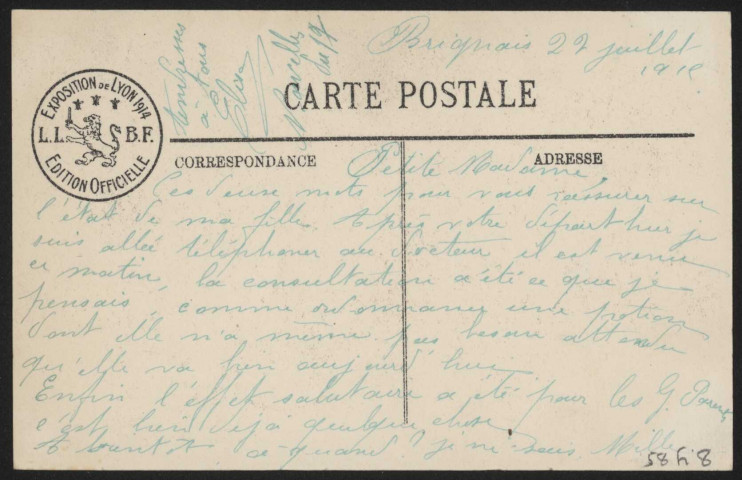 Brignais 22 juillet
191
CARTE POSTALE
EXPOSITION DE LYON 1914
L.L. B.F.
EDITION OFFICIELLE
CORRESPONDANCE
ADRESSE
Petite Madame,
Ces deux mots pour vous rassurer sur
l'état de ma fille. Après votre départ hier je
suis allée téléphoner au docteur il est venu
ce matin, la consultation a été ce que je
pensais, comme ordonnance une potion
dont elle n'a même pas besoin attendu
qu'elle va bien aujourd'hui
Enfin l'effet salutaire a été pour les G. Parents
c'est bien déjà quelque chose
A bientôt à quand? je ne sais. Mille
tendresses
à tous
Elisa
Nouvelles
du 17
58 4 8